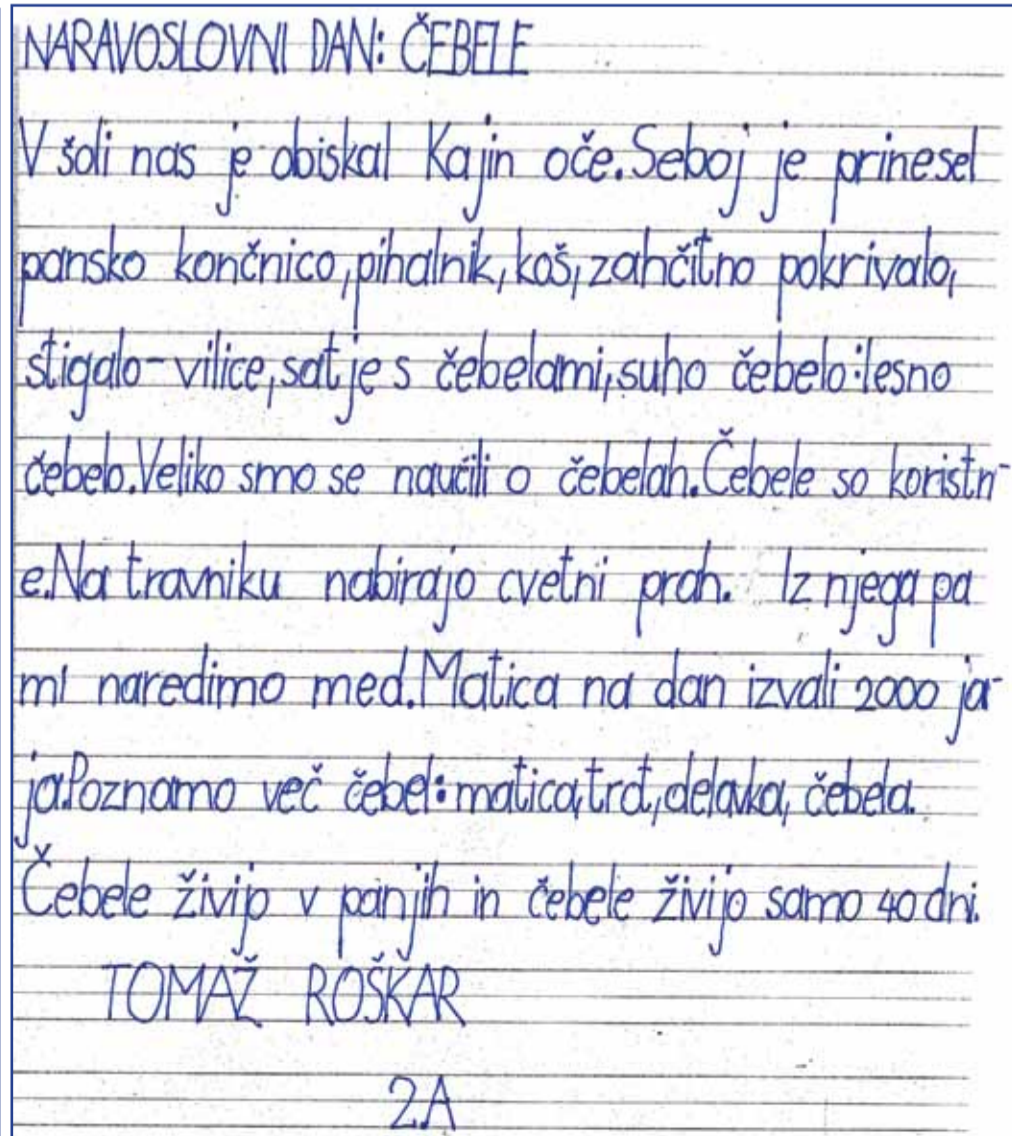 NARAVOSLOVNI DAN: ČEBELE
V šoli nas je obiskal Kajin oče. Seboj je prinesel
pansko končnico, pihalnik, koš, zahčitno pokrivalo,
stigalo-vilice, satje s čebelami, suho čebelo: lesno
čebelo. Veliko smo se naučili o čebelah. Čebele so koristn-
e. Na travniku nabirajo cvetni prah. Iz njega pa
mi naredimo med. Matica na dan izvali 2000 ja-
ja. Poznamo več čebel: matica, trot, delavka, čebela.
Čebele živijo v panjih in čebele živijo samo 40 dni.
TOMAŽ ROŠKAR
2.A